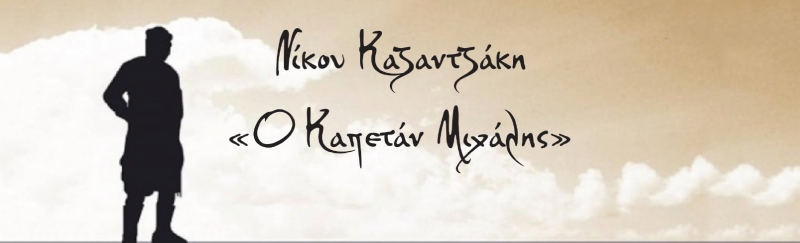 Νίκου Καζαντζάκη
«Ο Καπετάν Μιχάλης»